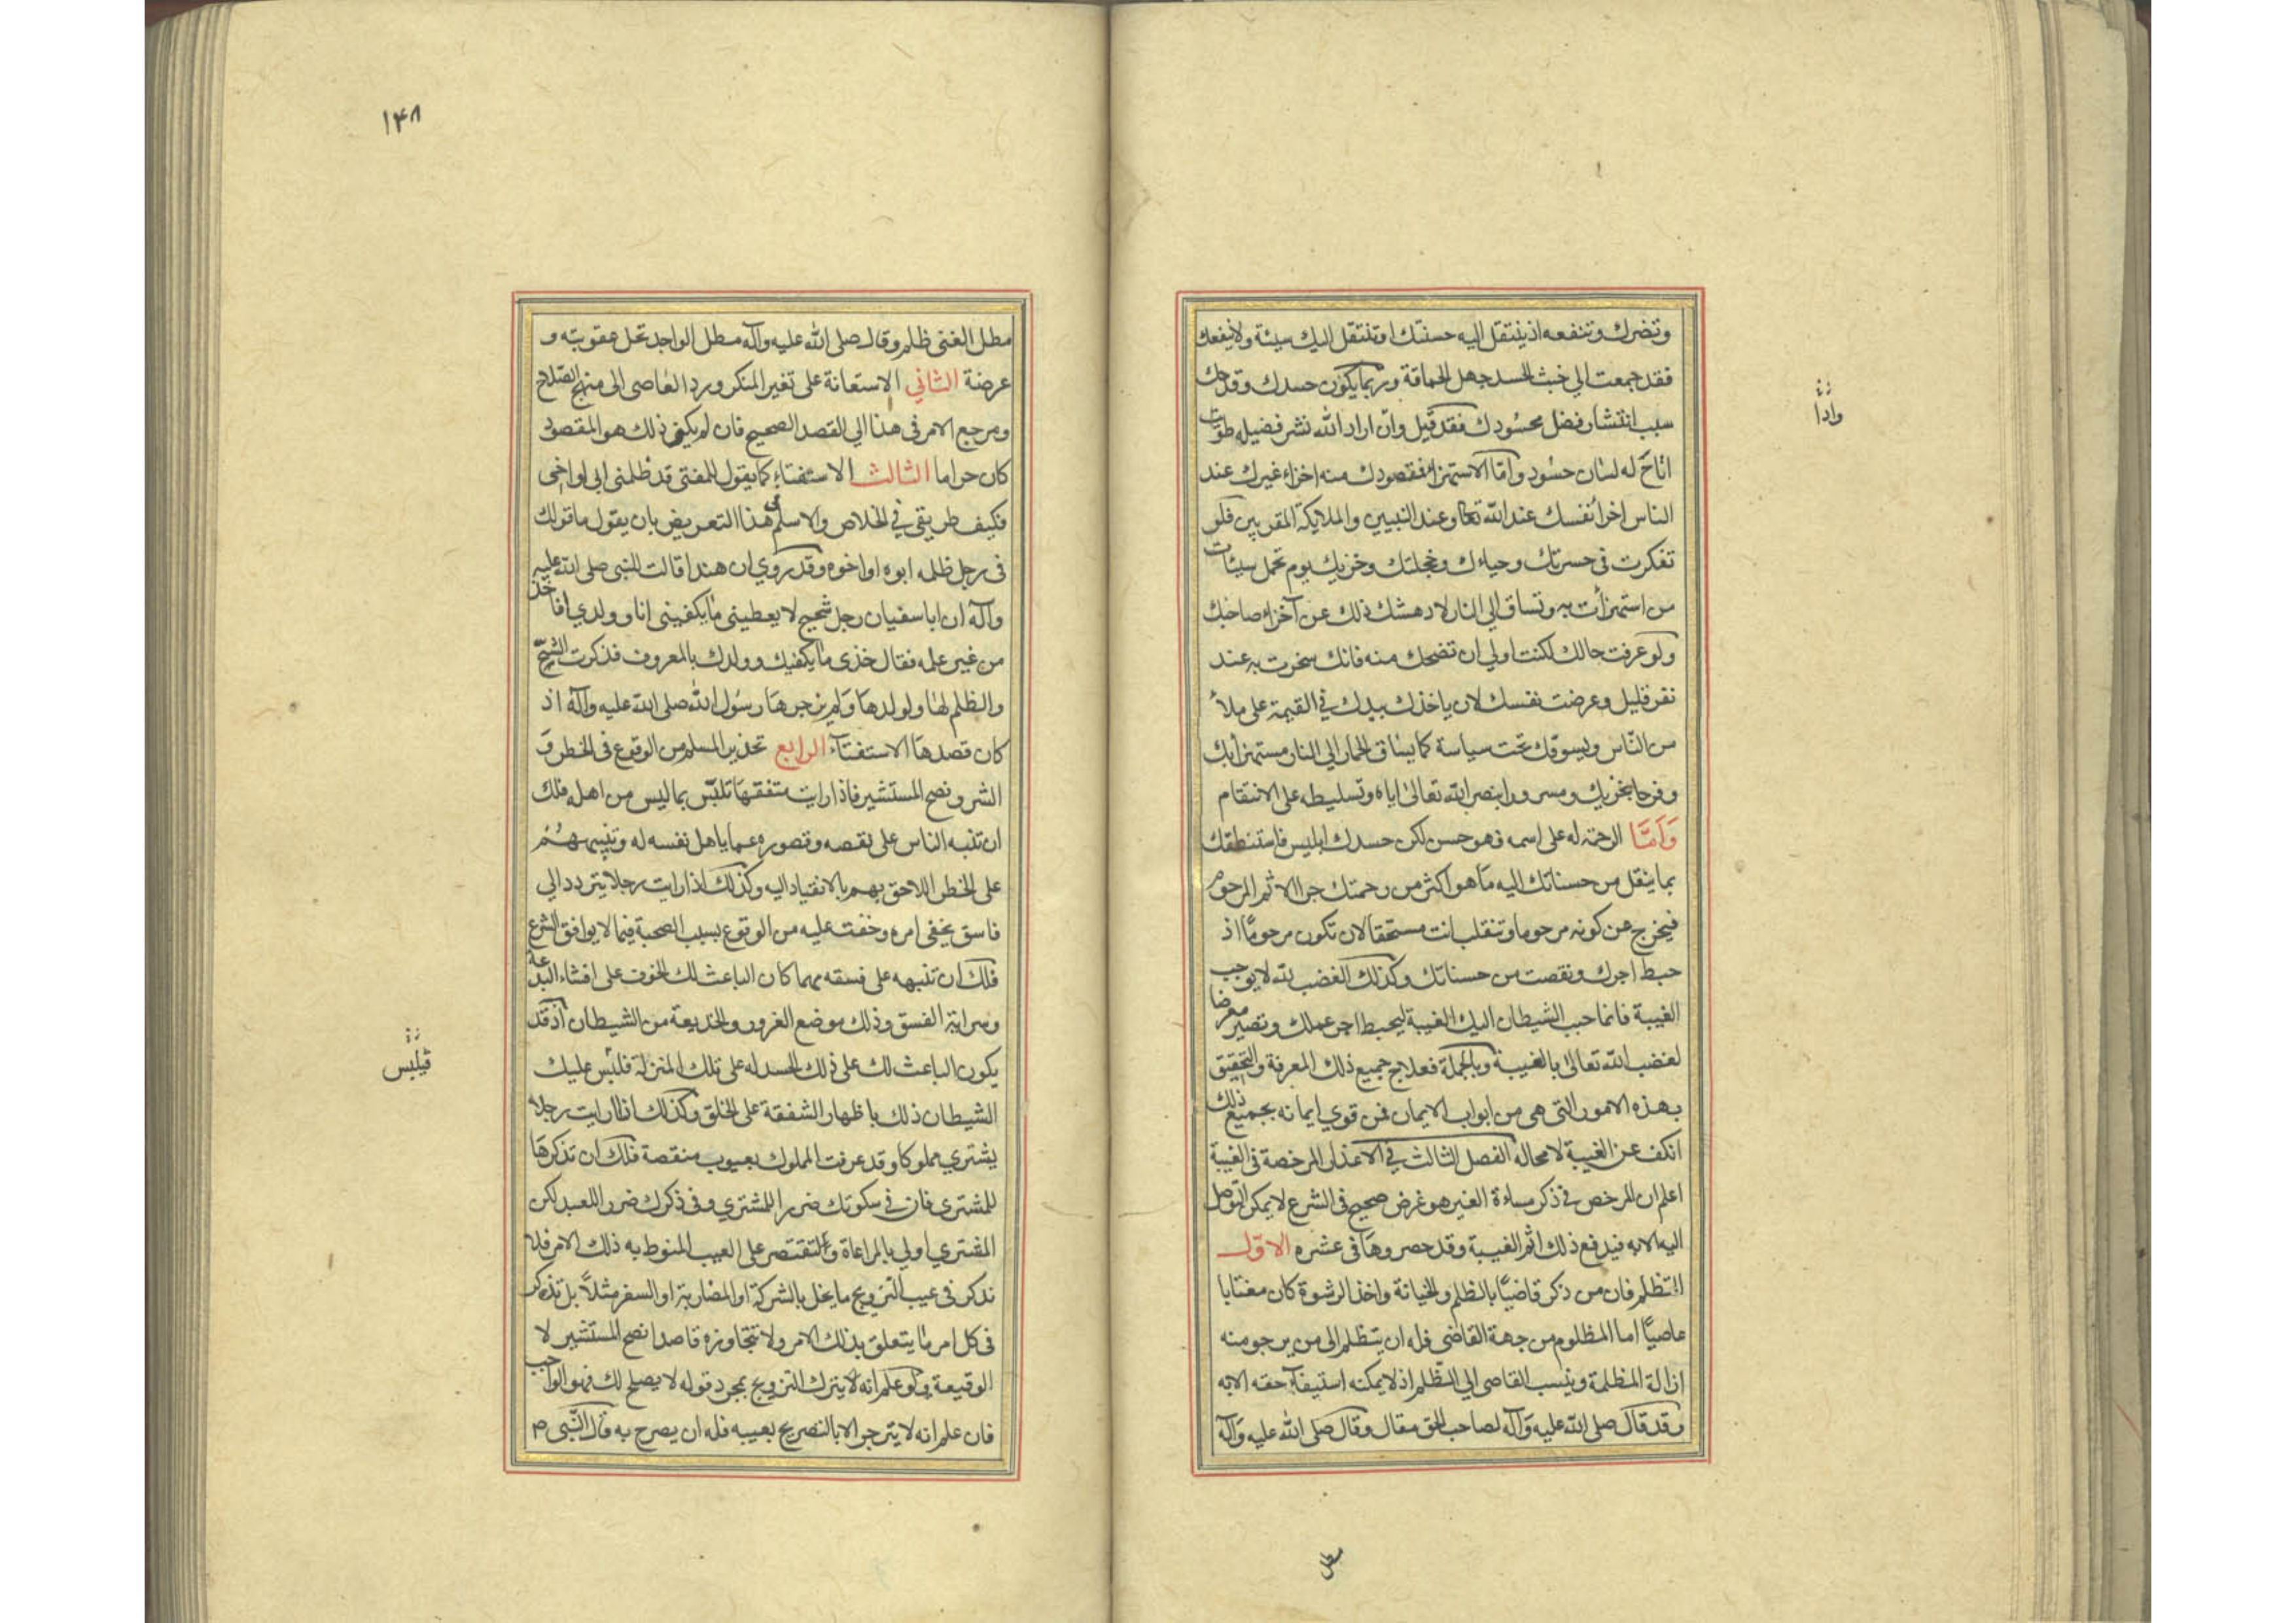 وتضرك وتنفعه اذ ينتقل اليه حسنتك او تنتقل اليك سيئة ولا ينفعك
فقد جمعت الي خبث الحسد جهل الحماقة وربما يكون حسدك وقدحك
سبب انتشار فضل محسودك فقد قيل وان اراد الله نشر فضيلة طويت
اتاح له لسان حسود واما الاستهزاء فمقصودك منه اخزاء غيرك عند
الناس اخزاء نفسك عند الله تعا وعند النبيين والملايكة المقربين فلو
تفكرت في حسرتك وحياءك وخجلتك وخزيك يوم تحمل سيئات
من استهزأت به وتساق الي النار لادهشك ذلك عن اخزاء صاحبك
ولو عرفت حالك لكنت اولي ان تضحك منه فانك سخرت به عند
نفر قليل وعرضت نفسك لان ياخذك بيدك في القيمة على ملأ
من الناس ويسوقك تحت سياسة كما يساق الحمار الي النار مستهزأ بك
وفرحا بخزيك ومسرورا بنصر الله تعالى اياه وتسليطه على الانتقام
وَاَمَّا الرحمة له على اسمه فهو حسن لكن حسدك ابليس فاستنطقك
بما ينقل من حسناتك اليه ما هو اكثر من رحمتك جبرا لاثم المرحوم
فيخرج عن كونه مرحوما وتنقلب انت مستحقا لان تكون مرحوما اذ
حبط اجرك ونقصت من حسناتك وكذلك الغضب لله لا يوجب
الغيبة فانما حبب الشيطان اليك الغيبة ليحبط اجر عملك وتصير معرضا
لغضب الله تعالى بالغيبة وبالجملة فعلاج جميع ذلك المعرفة والتحقيق
بهذه الامور التى هى من ابواب الايمان فمن قوي ايمانه بجميع ذلك
انكف عن الغيبة لا محاله الفصل الثالث في الاعذار المرخصة فى الغيبة
اعلم ان المرخص في ذكر مساءة الغير هو غرض صحيح فى الشرع لا يمكن التوصل
اليه الا به فيدفع ذلك اثم الغيبة وقد حصروها فى عشره الاوّل
التظلم فان من ذكر قاضيًا بالظلم والخيانة واخذ الرشوة كان مغتابا
عاصيًا اما المظلوم من جهة القاضى فله ان يتظلم الى من يرجو منه
ازالة المظلمة وينسب القاضى الي الظلم اذ لا يمكنه استيفاء حقه الا به
وقد قال صلى الله عليه وآله لصاحب الحق مقال وقال صلى الله عليه وآله
وادا
مطل
۱۴۸
مطل الغنى ظلم وقال صلى الله عليه وآله مطل الواجد تحل عقوبته و
عرضة الثاني الاستعانة على تغير المنكر ورد العاصى الى منهج الصلاح
ومرجع الامر فى هذا الي القصد الصحيح فان لم يكن ذلك هو المقصود
كان حراما الثالث الاستفتاء كما يقول للمفتى قد ظلمنى ابى او اخى
فكيف طريقى في الخلاص والاسلم فى هذا التعريض بان يقول ما قولك
فى رجل ظلمه ابوه او اخوه وقد روي ان هندا قالت للنبى صلى الله عليه
وآله ان ابا سفيان رجل شحيح لا يعطينى ما يكفينى انا وولدي أفاخذ
من غير علمه فقال خذى ما يكفيك وولدك بالمعروف فذكرت الشح
والظلم لها ولولدها ولم يزجرها رسول الله صلى الله عليه وآله اذ
كان قصدها الاستفتاء الرابع تحذير المسلم من الوقوع فى الخطر و
الشر ونصح المستشير فاذا رايت متفقها تلبّس بما ليس من اهله فلك
ان تنبه الناس على نقصه وقصوره عما ياهل نفسه له وتنبيههم
على الخطر اللاحق بهم بالانقياد اليه وكذلك اذا رايت رجلا يتردد الي
فاسق يخفى امره وخفت عليه من الوقوع بسبب الصحبة فيما لا يوافق الشرع
فلك ان تنبهه على فسقه مهما كان الباعث لك الخوف على افشاء البدعة
وسراية الفسق وذلك موضع الغرور والخديعة من الشيطان اذ قد
يكون الباعث لك على ذلك الحسد له على تلك المنزلة فلبّس عليك
الشيطان ذلك باظهار الشفقة على الخلق وكذلك اذا رايت رجلا
يشتري مملوكا وقد عرفت المملوك بعيوب منقصة فلك ان تذكرها
للمشترى فان في سكوتك ضررا للمشتري وفى ذكرك ضررا للعبد لكن
المشتري اولي بالمراعاة ولتقتصر على العيب المنوط به ذلك الامر فلا
تذكر فى عيب التزويج ما يخل بالشركة او المضاربة او السفر مثلاً بل تذكر
فى كل امر ما يتعلق بذلك الامر ولا تتجاوزه قاصدا نصح المستشير لا
الوقيعة ولو علم انه لا يترك التزويج بمجرد قوله لا يصلح لك فهو الواجب
فان علم انه لا يترجر الا بالتصريح بعيبه فله ان يصرح به قال النبى ص
فيلبس